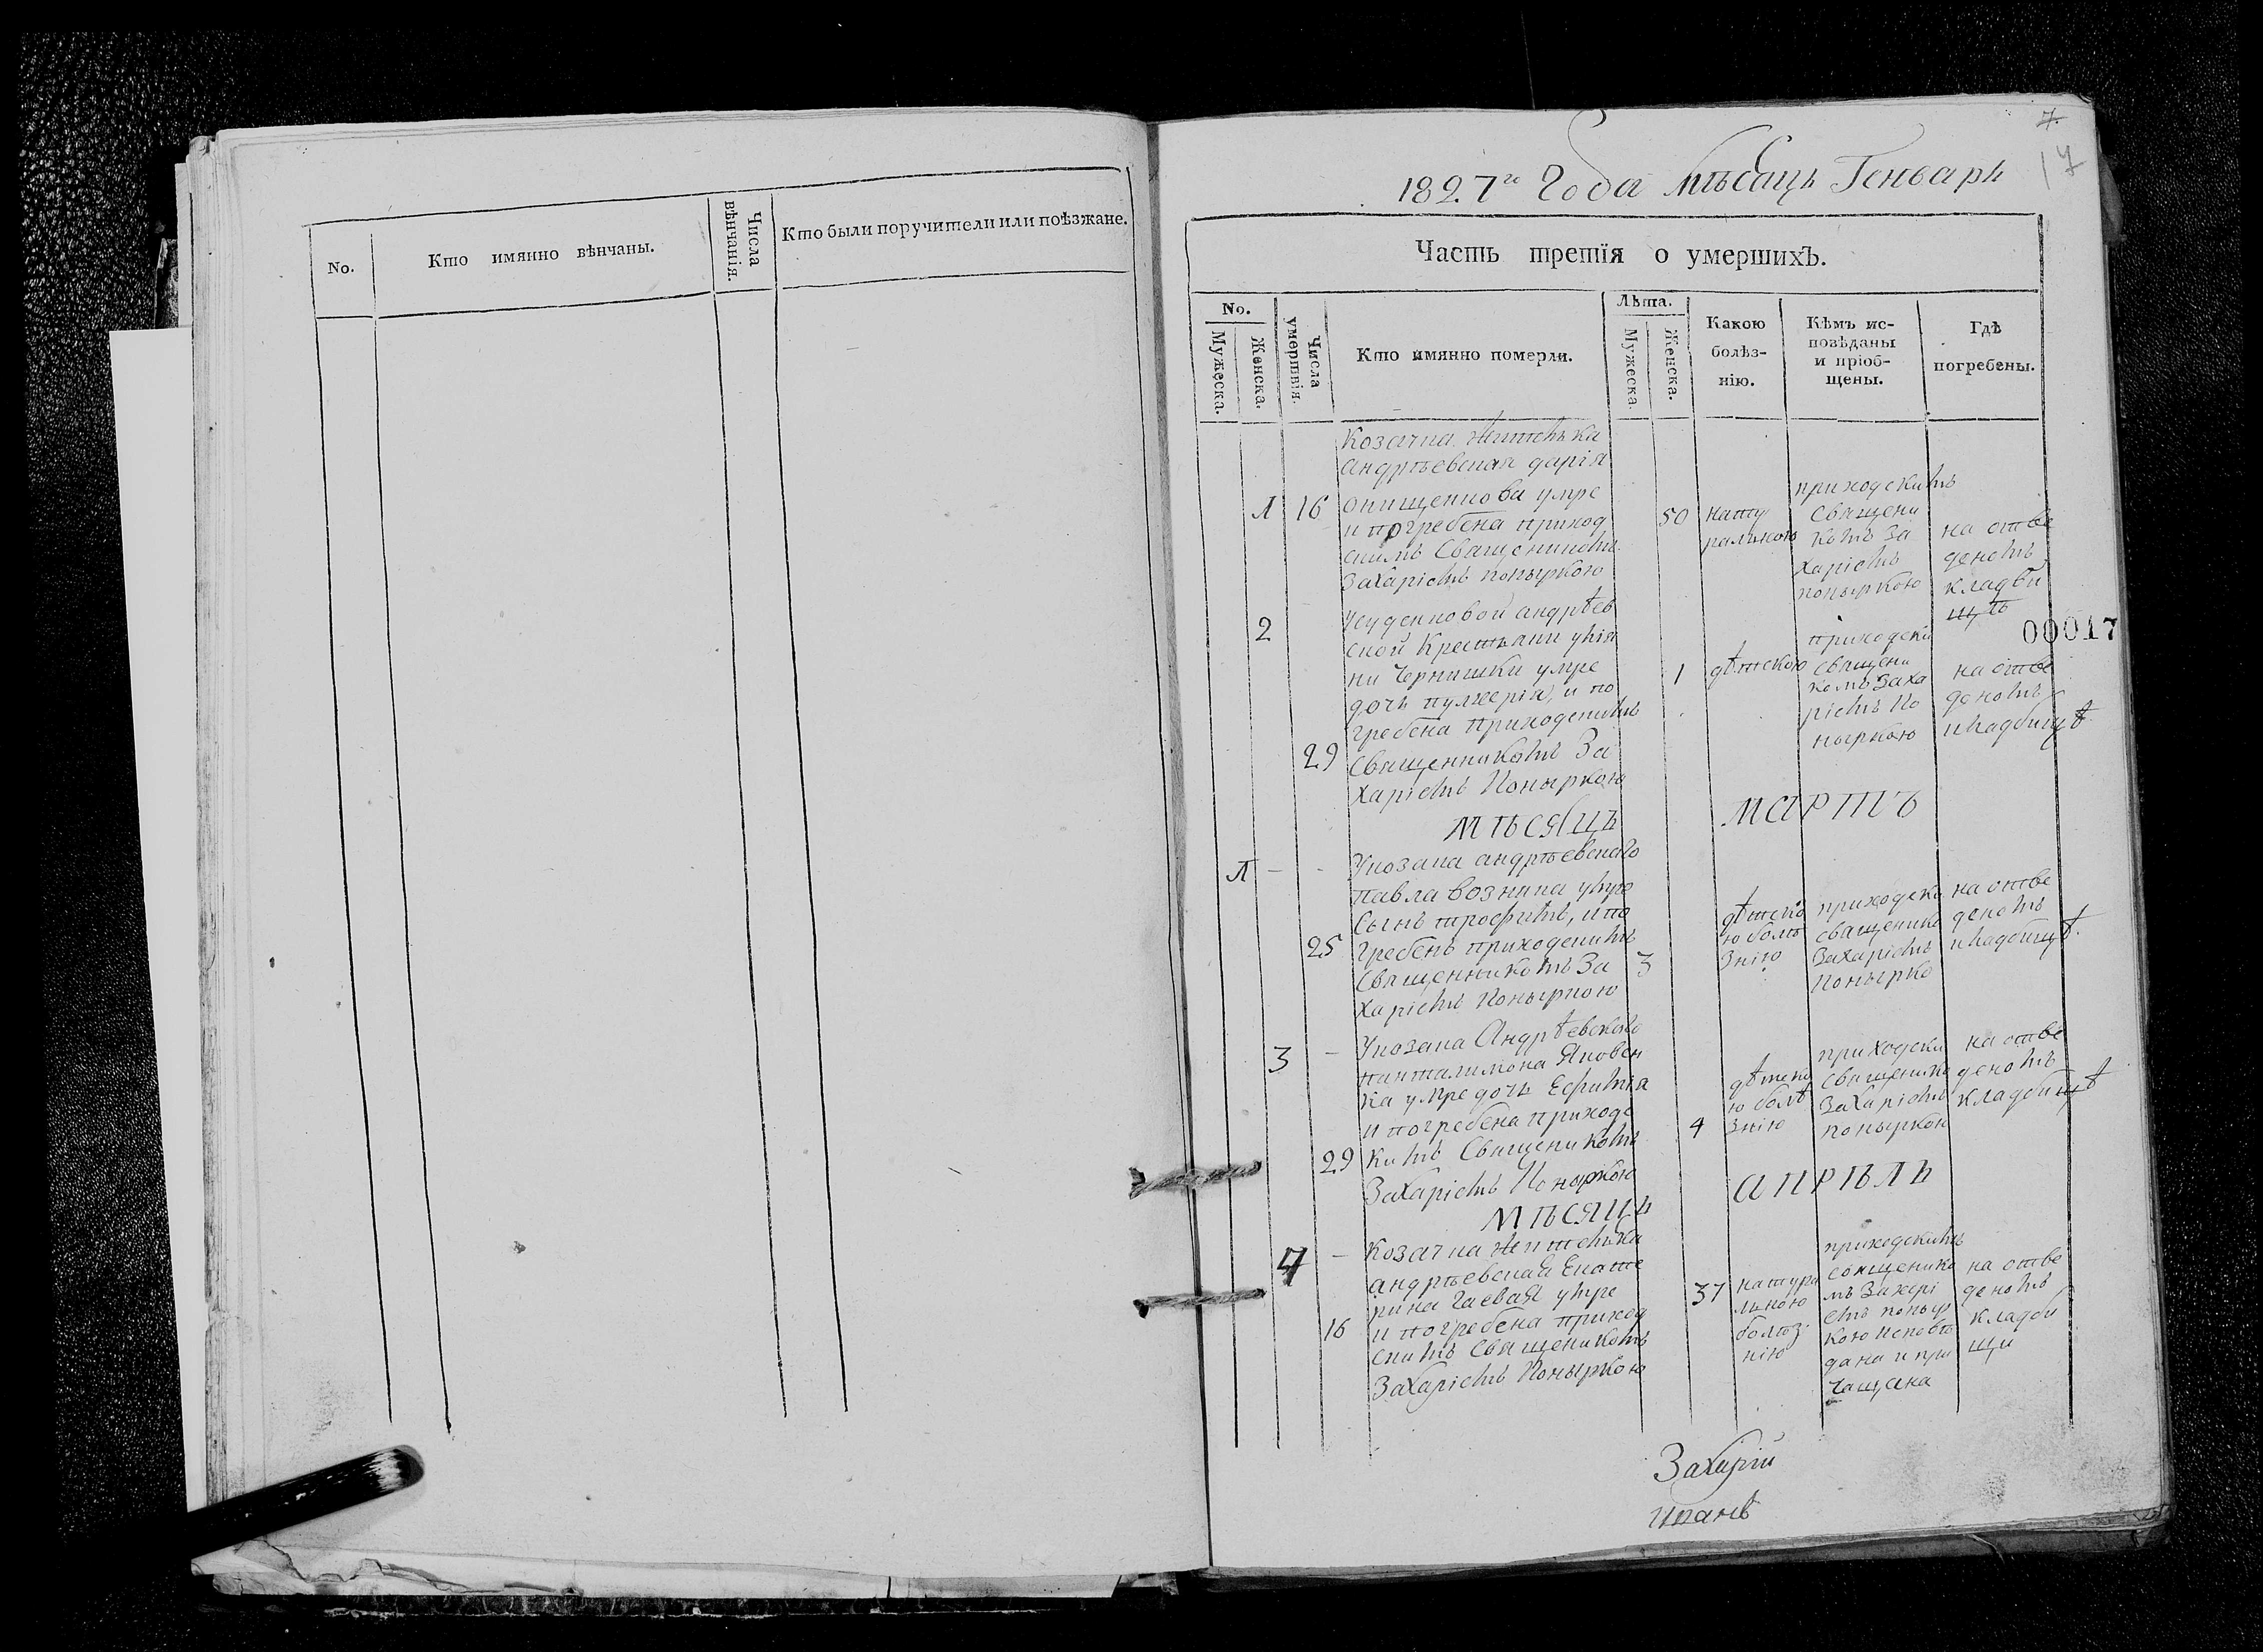 No.
Кто имянно вѣнчаны.
Числа вѣнчанія.
Кто были поручители или поѣзжане.
7.
17
1827го Года мѣсаць Генварь
Часть третія о умершихъ.
No.
Мужеска.
Женска.
Числа умертвія.
Кто имянно померли.
Лѣта.
Мужеска.
Женска.
Какою болѣз-
нію.
Кѣмъ ис-
повѣданы
и пріоб-
щены.
Гдѣ
погребены.
Козачка Жителька
андрѣевская дарія
онищенкова умре
и погребена приход
скимъ Священикомъ
Захаріемъ поныркою
1
16
50
нату
ральною
приходскимъ
Священи
комъ За
харіемъ
поныркою
на отве
деномъ
кладби
щѣ
00017
2
андрѣев
ской Крестьяни
ни Чернишки умре
дочь пулхерія, и по
гребена приходскимъ
Священникомъ За
харіемъ Поныркою
29
1
дѣтскою
приходски
Священи
комъ Заха
ріемъ По
ныркою
на отве
деномъ
кладбищѣ
МѢСЯЦЪ
МАРТЪ
1
У козака андрѣевскаго
Павла возника умре
Сынъ трофимъ, и по
гребенъ приходскимъ
Священникомъ За
харіемъ Поныркою
25
3
дѣтско
ю болѣ
знію
приходски
священико
Захаріемъ
Понырко
на отве
деномъ
кладбищѣ.
3
У козака Андрѣевскаго
панталимона Яковен
ка умре дочь Ефимія
и погребена приходс
кимъ Священикомъ
Захаріемъ Поныркою
29
4
дѣтско
ю болѣ
знію
приходски
Священико
Захаріемъ
поныркою
на отве
деномъ
кладбищѣ
МѢСЯЦЪ
АПРѢЛЬ
4
Козачка Жителька
андрѣевская Екате
рина Гаевая умре
и погребена приход
скимъ Священикомъ
Захаріемъ Поныркою
16
37
натура
льною
болѣз
нію
приходскимъ
священико
мъ Захарі
емъ поныр
кою исповѣ
дана и при
чащена
на отве
деномъ
кладби
щи
Захарій